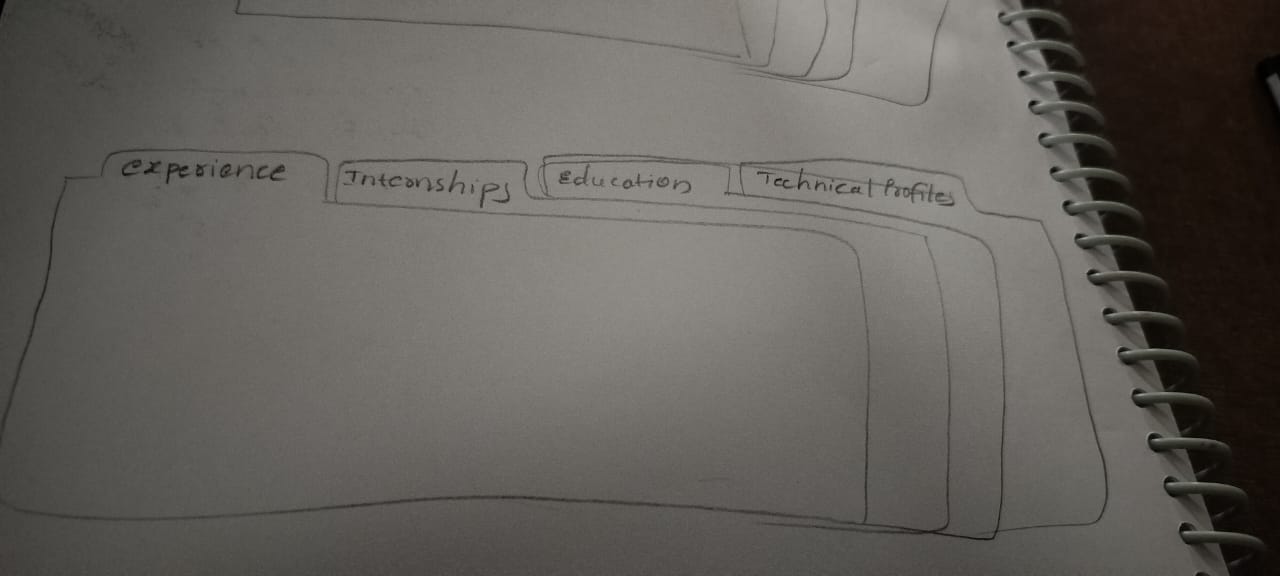 experience Internships Education Technical Profiles